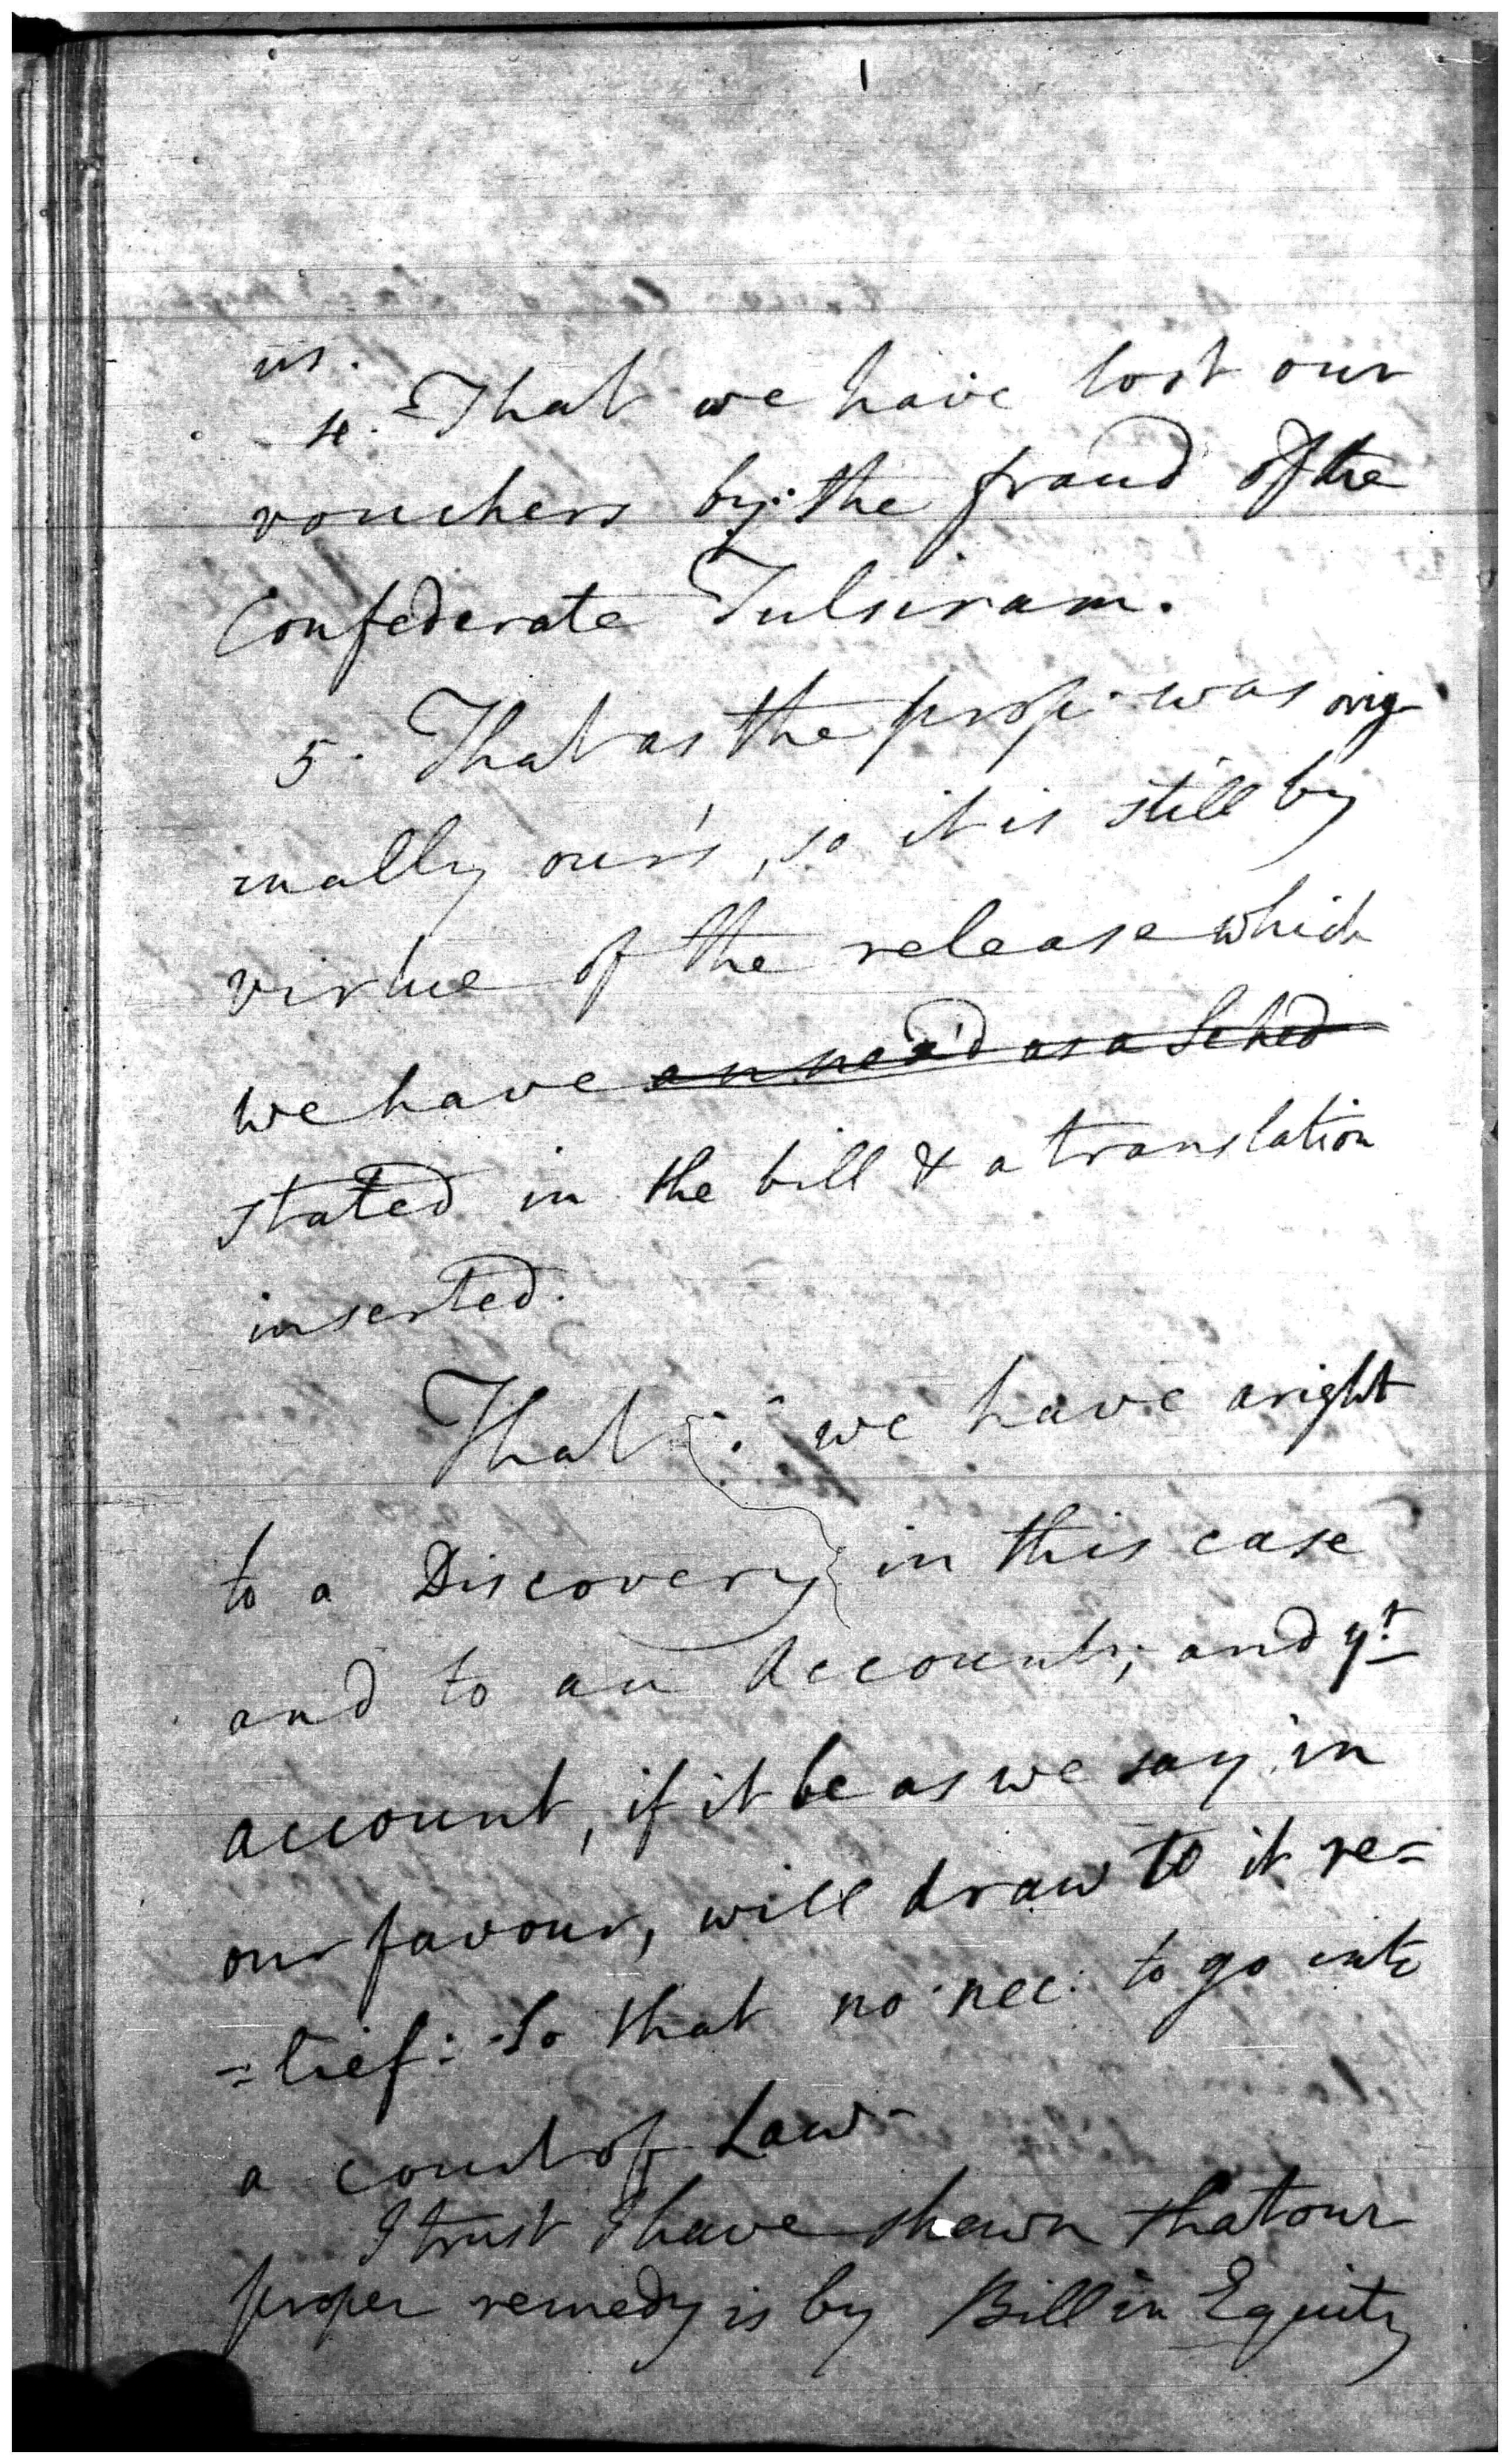 us.
4. That we have lost our
vouchers by the fraud of the
Confederate Tulsiram.
5. That as the prop: was orig
=nally our's, so it is still by
virtue of the release which
we have annex'd as a Sched
stated in the bill & a translation
inserted.
That we have a right
to a Discovery in this case
and to an Account; and yt.
account, if it be as we say in
our favour, will draw to it re=
=lief: So that no nec: to go into
a court of Law
I trust I have shewn that our
proper remedy is by Bill in Equity